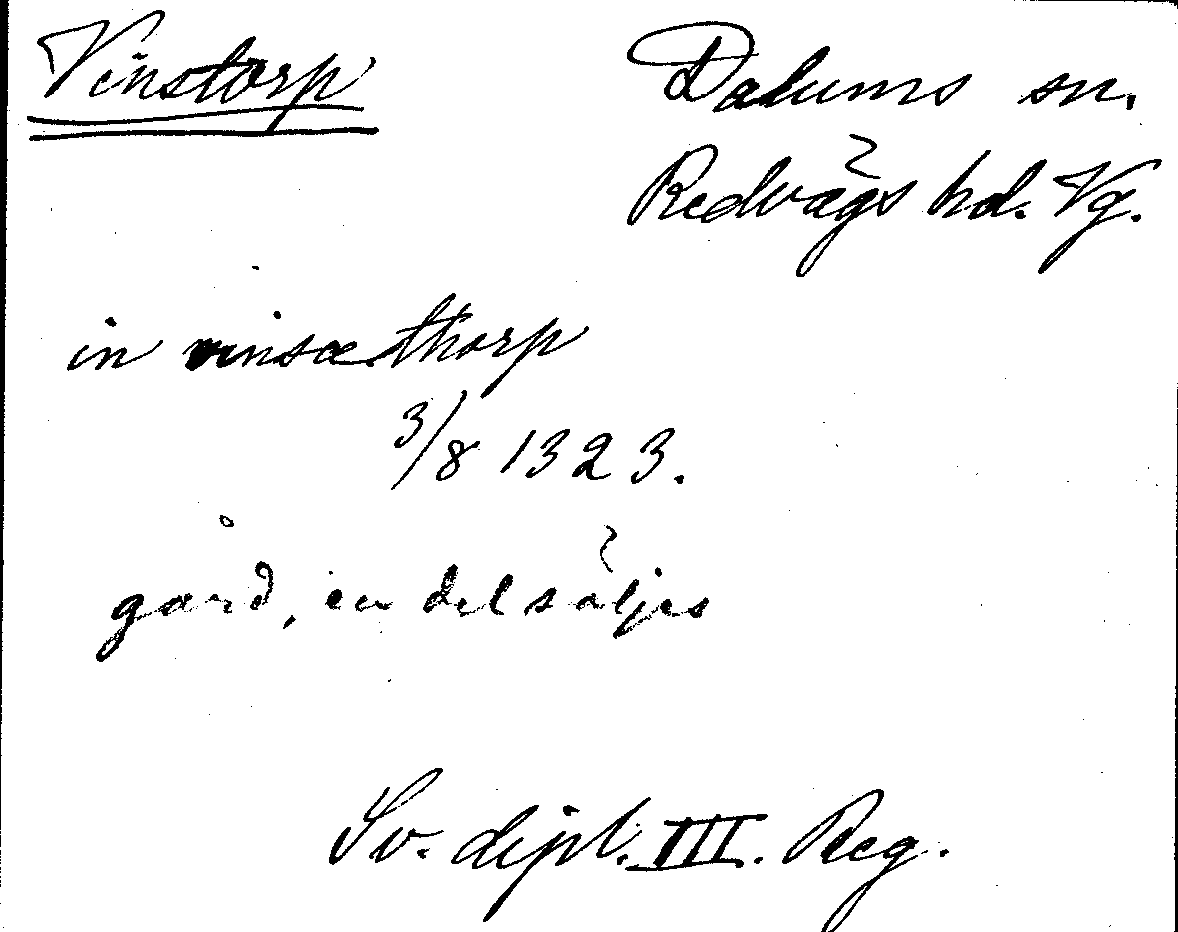 Vinstorp
Dalums sn.
Redvägs hd. Vg.
in vinsæthorp
3/8 1323.
gård, en del säljes
Sv. dipl. III. Reg.